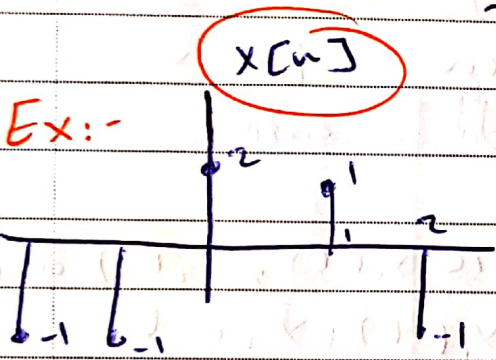 x[n]
Ex:-
2
1
1
2
-1
-1
-1